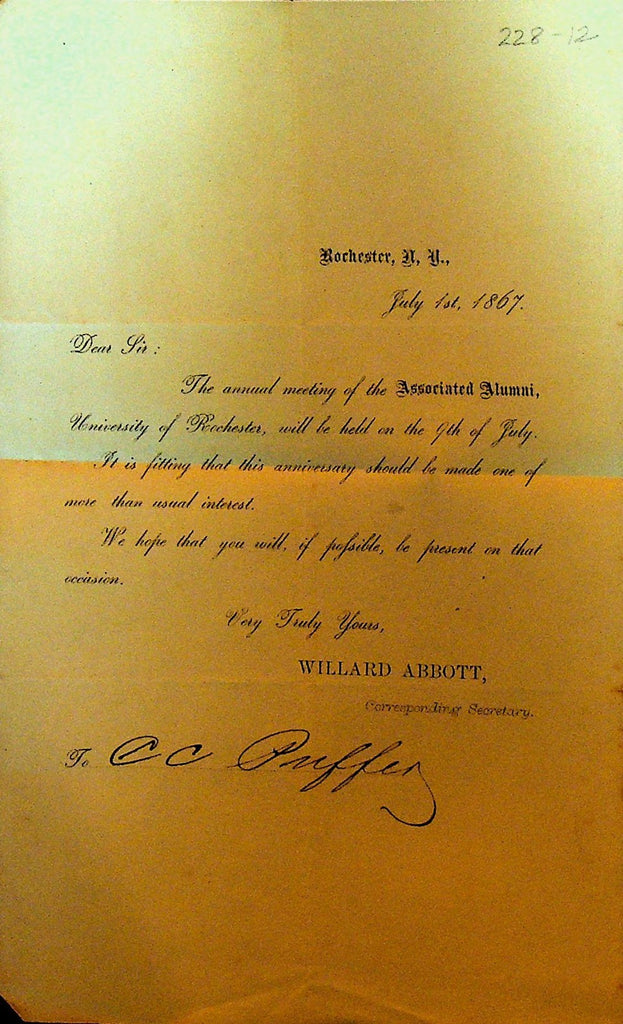 228-12
Rochester, N, Y.,
July 1st, 1867.
Dear Sir:
The annual meeting of the Associated Alumni,
University of Rochester, will be held on the 9th of July.
It is fitting that this anniversary should be made one of
more than usual interest.
We hope that you will, if poſsible, be present on that
occasion.
Very Truly Yours,
WILLARD ABBOTT,
Corresponding Secretary.
To C C Puffer